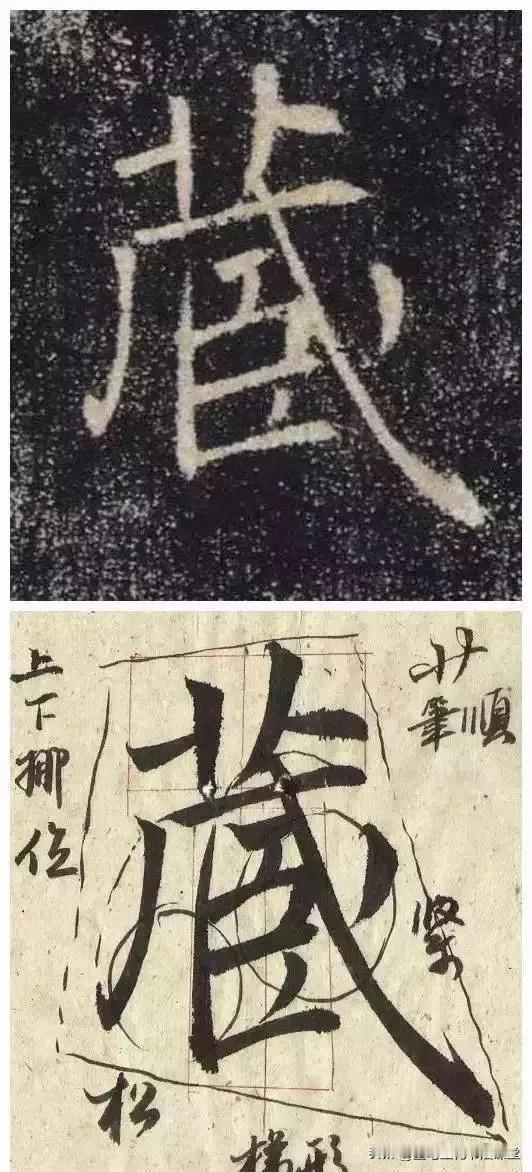 藏
藏
上下挪位
艹
筆順
緊
松
梯形